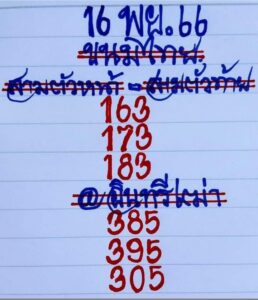 16 พย.66
ขนมไทย
สามตัวหน้า - สามตัวท้าย
163
173
183
@อินทรีเหม่า
385
395
305